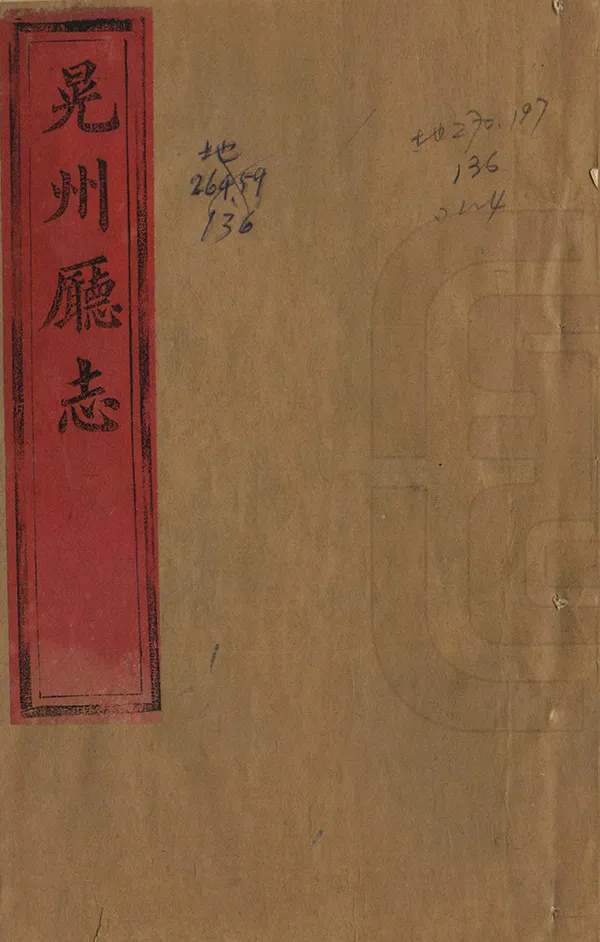 晃州廳志
地
264.59
136
地270.197
136